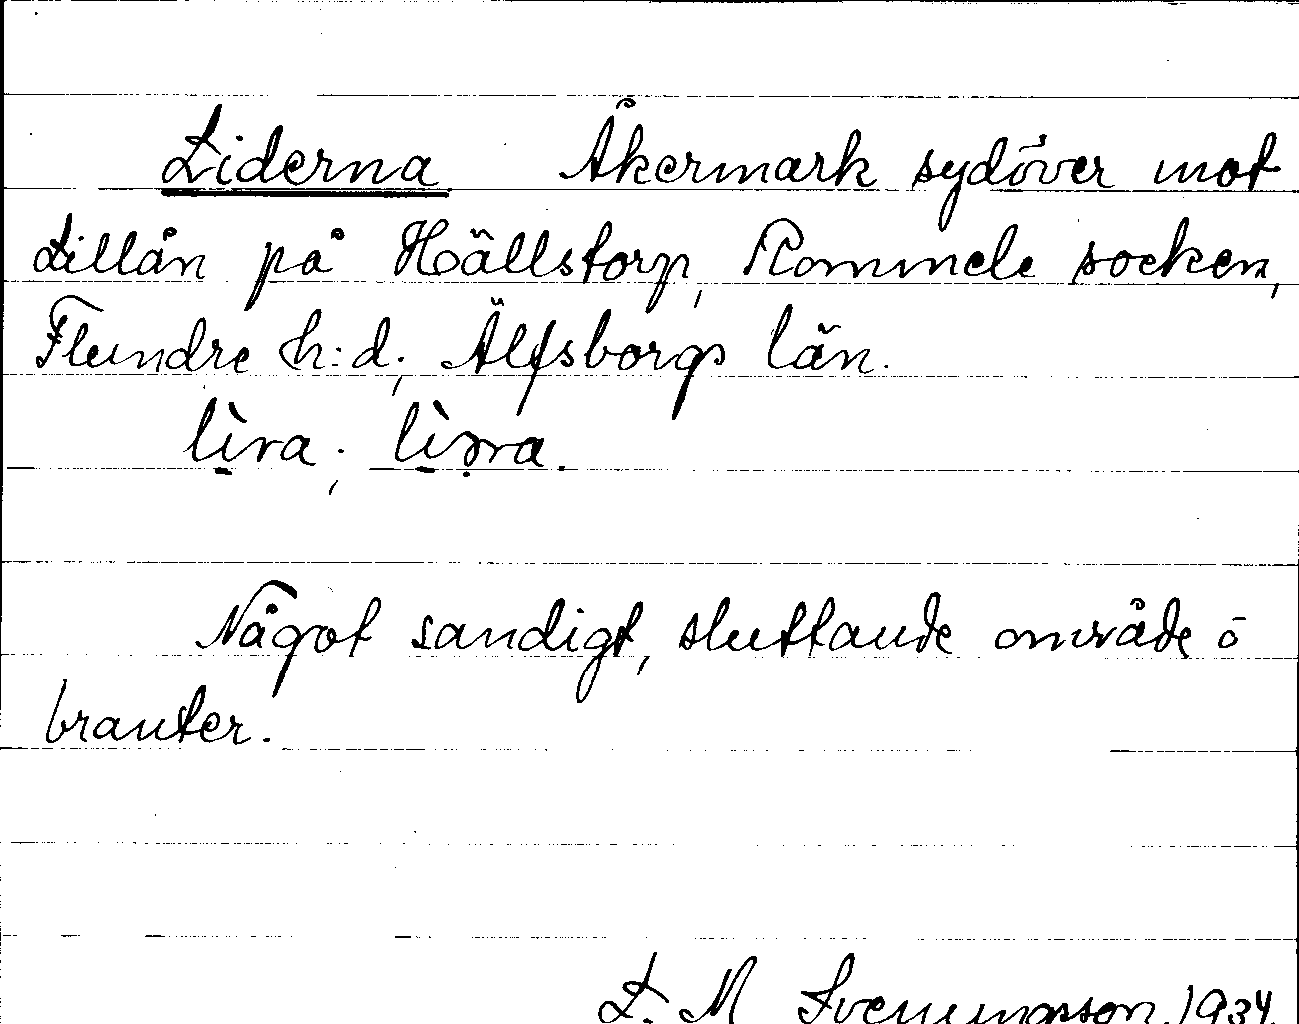 Liderna Åkermark sydöver mot
Lillån på Hällstorp, Rommele socken,
Flundre h:d; Älfsborgs län.
lìra; 
Något sandigt, sluttande område ō
branter.
L. M Svenungsson, 1934.